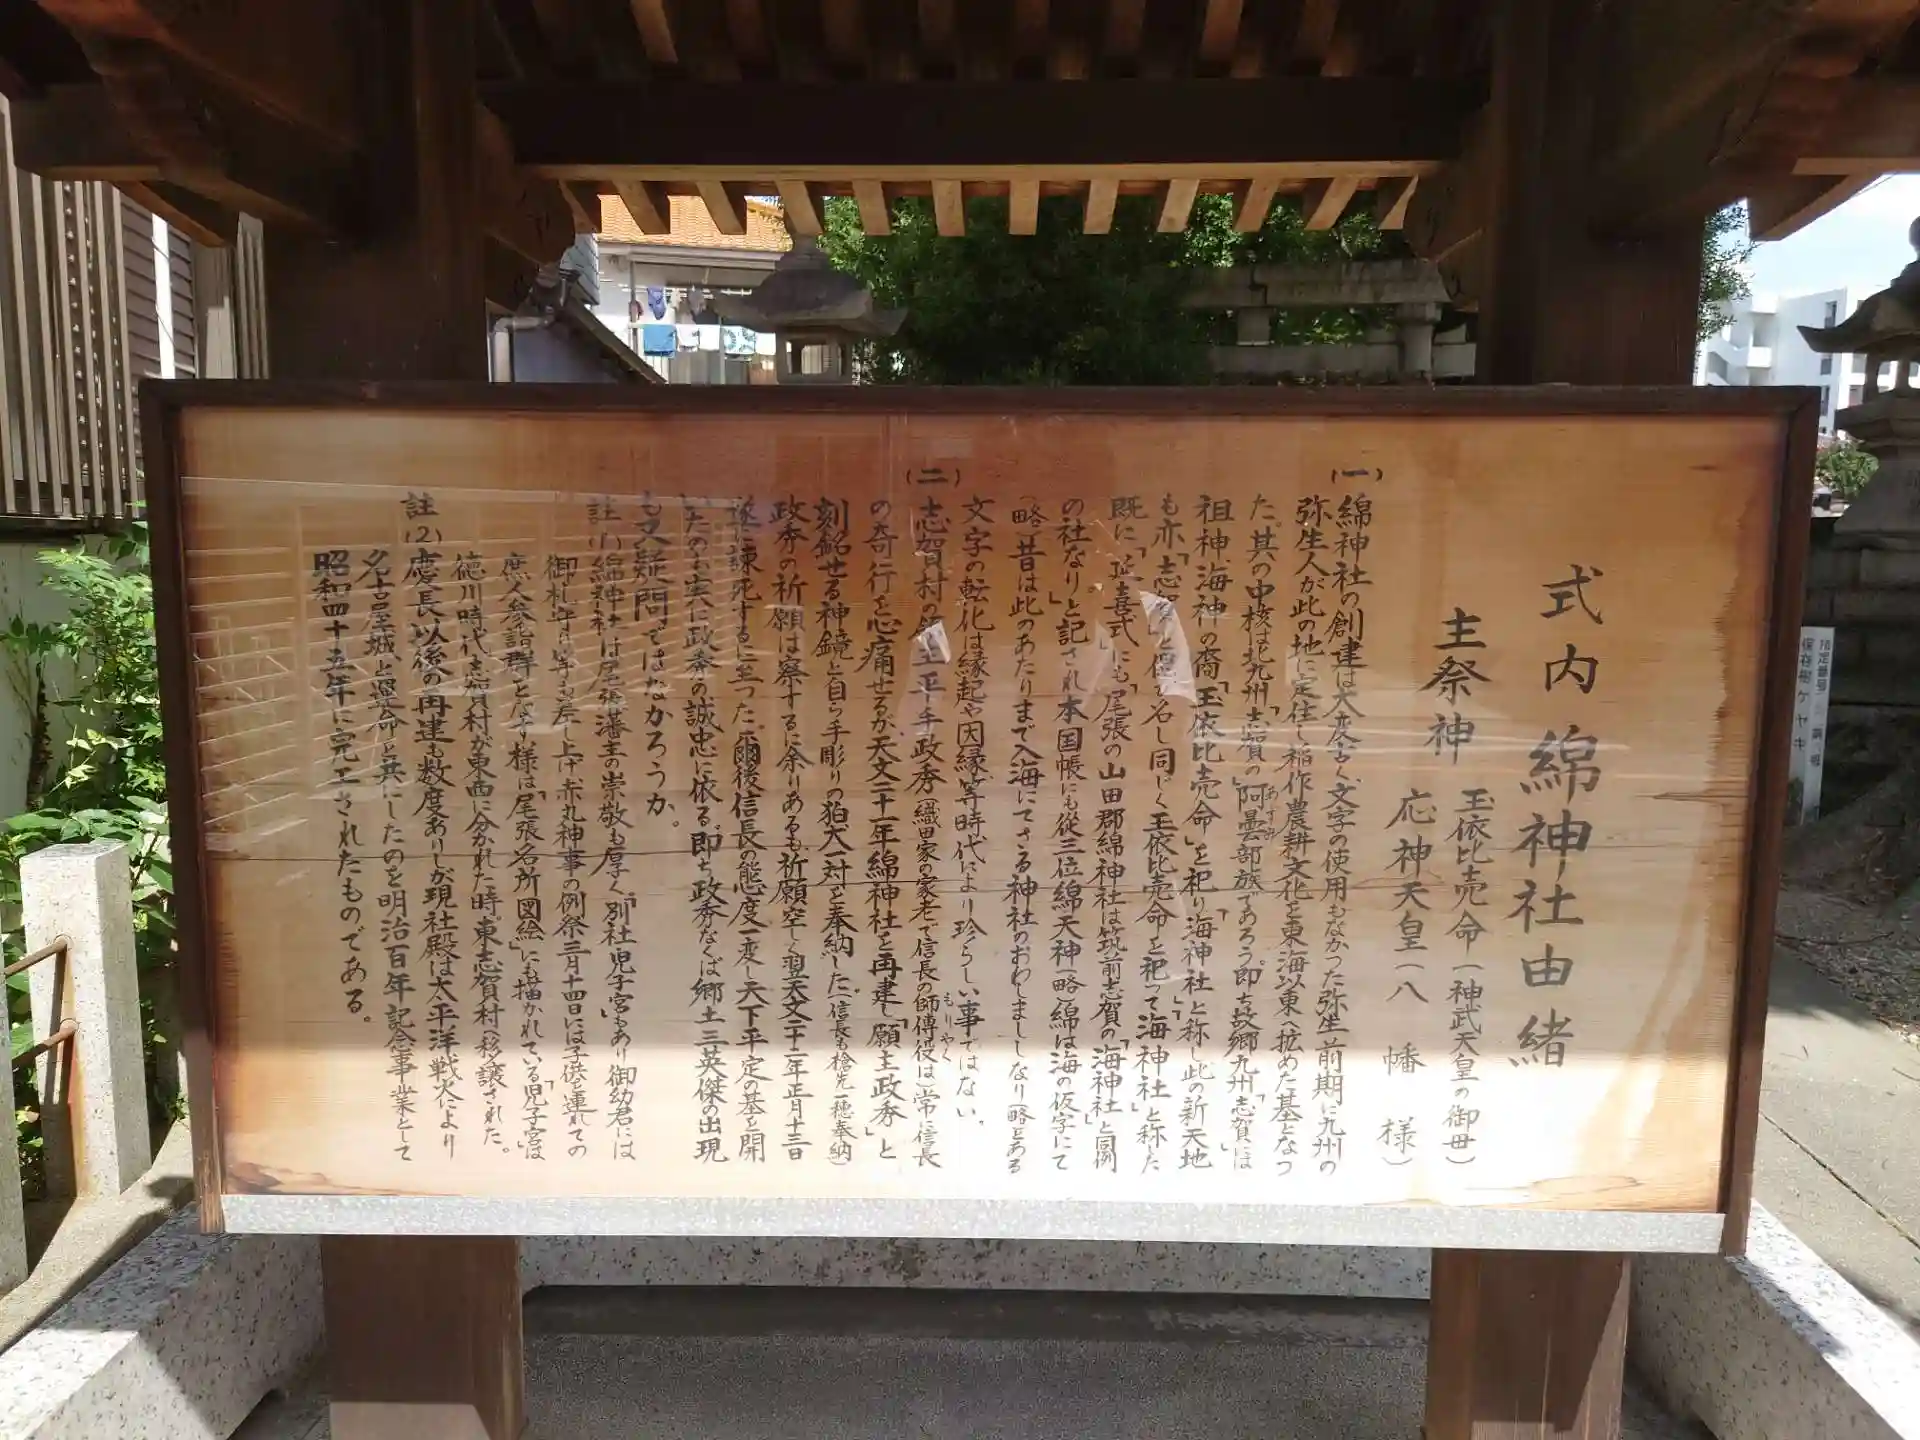 式内綿神社由緒
主祭神 玉依比売命(神武天皇の御母)
応神天皇(八幡様)
(一)
綿神社の創建は大変古く、文字の使用もなかった弥生前期に九州の
弥生人が此の地に定住し稲作農耕文化を東海以東へ拡めた基となつ
た。其の中核は北九州「志賀の」阿曇部族であろう。即ち故郷九州「志賀」には
あずみ
祖神、海神の裔「玉依比売命」を祀り「海神社」と称し此の新天地
も亦「志賀」と地名し同じく玉依比売命を祀って「海神社」と称した
既に「延喜式」にも「尾張の山田郡綿神社は筑前志賀の「海神社」と同例
の社なり」と記され本国帳にも従三位綿天神(略)綿は海の仮字にて
(略)昔は此のあたりまで入海にてさる神社のおわしまししなり(略)とある
文字の転化は縁起や因縁等時代により珍らしい事ではない。
(二)
志賀村の領主平手政秀(織田家の家老で信長の師傅役は)常に信長
もりやく
の奇行を心痛せるが天文二十一年綿神社を再建し「願主政秀」と
刻銘せる神鏡と自ら手彫りの狛犬一対を奉納した。(信長も槍先一穂奉納)
政秀の祈願は察するに余りあるも祈願空しく翌天文二十二年正月十三日
遂に諫死するに至った。爾後信長の態度一変し天下平定の基を開
いたのも実に政秀の誠忠に依る。即ち政秀なくば郷土三英傑の出現
も又疑問ではなかろうか。
註(1)綿神社は尾張藩主の崇敬も厚く、「別社児子宮」もあり御幼君には
御札 年月 差し上げ赤丸神事の例祭三月十四日には子供を連れての
庶人参詣群となす様は「尾張名所図絵」にも描かれている。「児子宮」は
徳川時代志賀村が東西に分かれた時「東志賀村」へ移譲された。
註(2)慶長以後の再建も数度ありしが現社殿は太平洋戦火により
名古屋城と運命を共にしたのを明治百年記念事業として
昭和四十五年に完工されたものである。
指定番号
保存樹ケヤキ